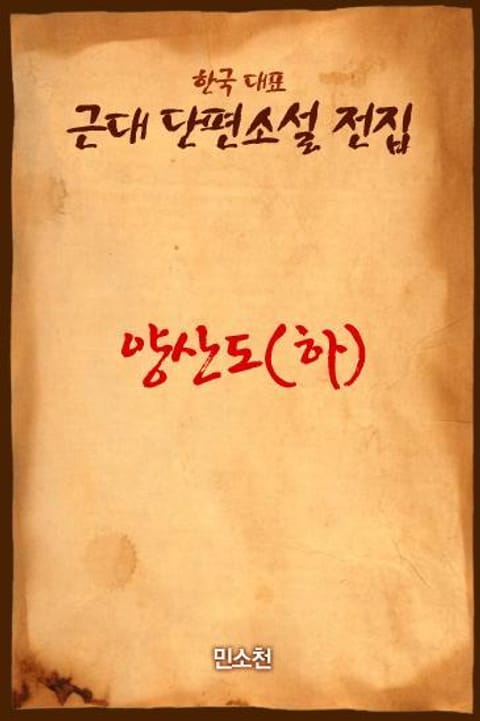 한국 대표
근대 단편소설 전집
양산도(하)
민소천